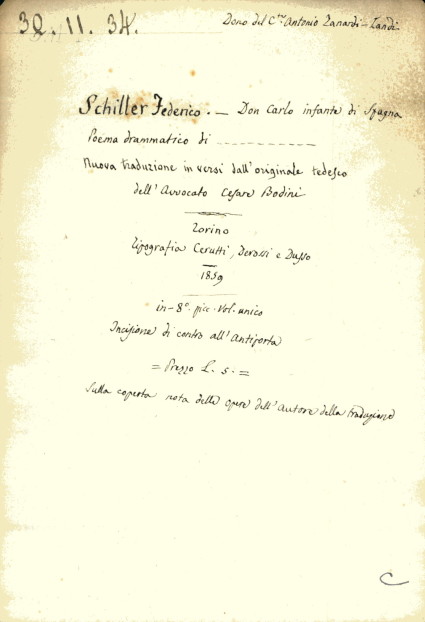 32.11.34.
Dono del C.te Antonio Zanardi-Landi
Schiller Federico. — Don Carlo infante di Spagna
Poema drammatico di ------------
Nuova traduzione in versi dall'originale tedesco
dell'Avvocato Cesare Bodini
Torino
Tipografia Cerutti, Derossi e Dusso
1859
in-8°. picc. Vol. unico
Incisione di contro all'Antiporta
= Prezzo L. 5. =
Sulla coperta nota delle opere dell'autore della traduzione
C